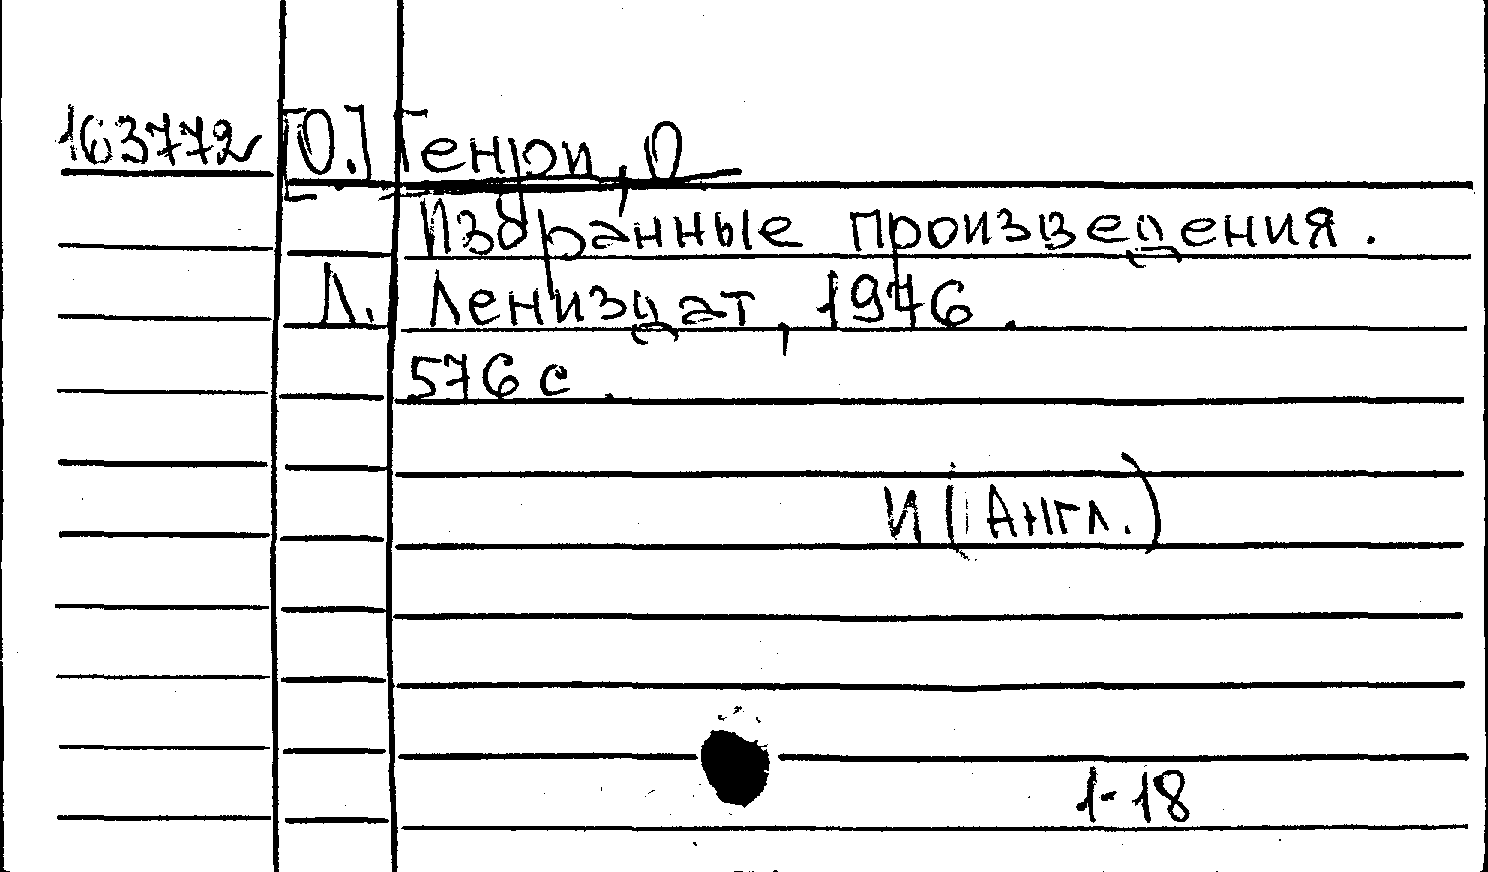 163772 [О.] Генри, О
Избранные произведения.
Л. Лениздат, 1976.
576 с.
И (Англ.)
1-18